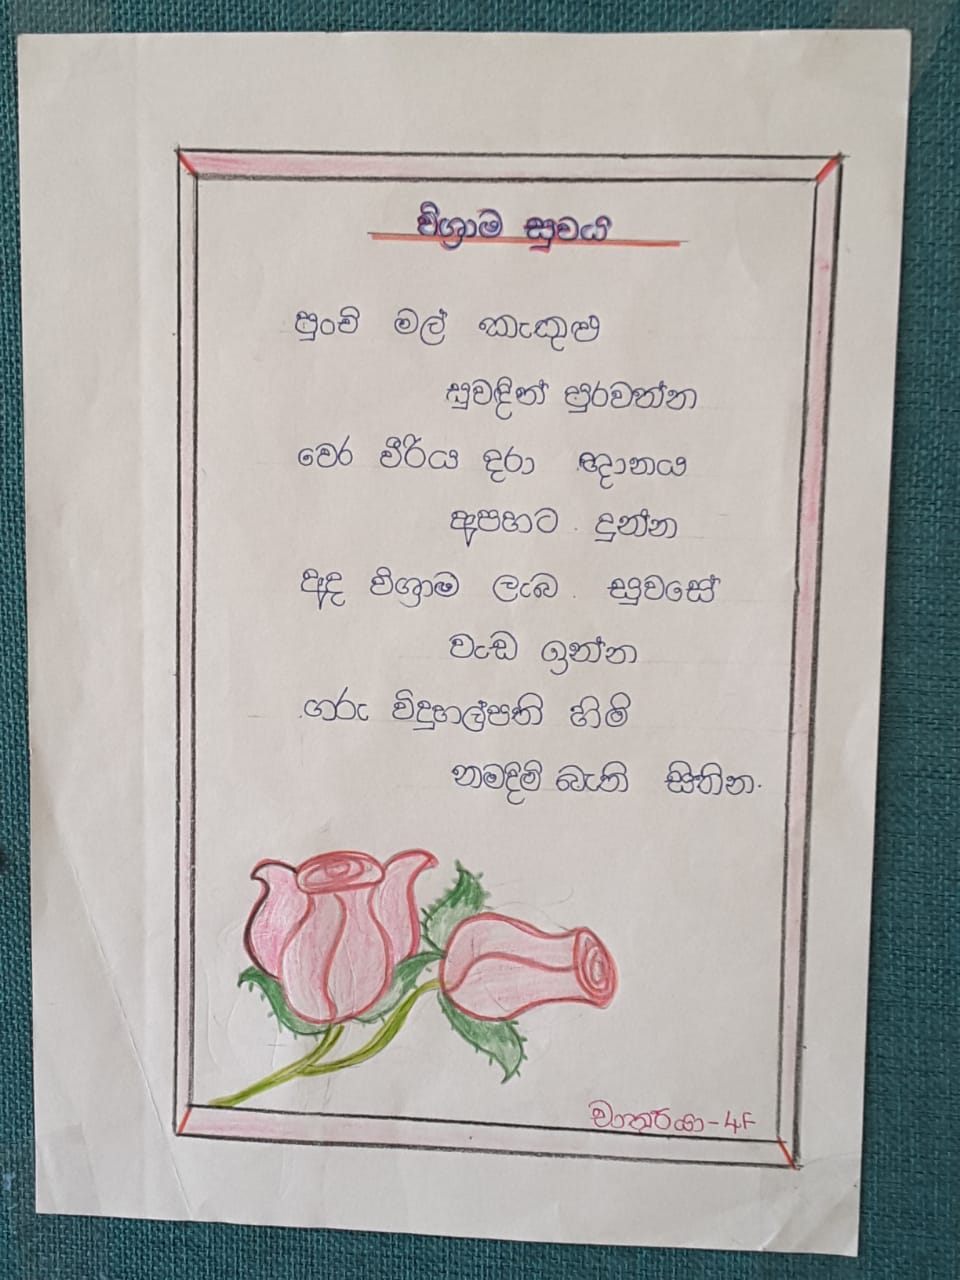 විශ්‍රාම සුවය
පුංචි මල් කැකුළු
සුවඳින් පුරවන්න
වෙර වීරිය දරා ඥානය
අපහට දුන්න
අද විශ්‍රාම ලැබ සුවසේ
වැඩ ඉන්න
ගරු විදුහල්පති හිමි
නමදිමි බැති සිතින.
චාතුරියා - 4F